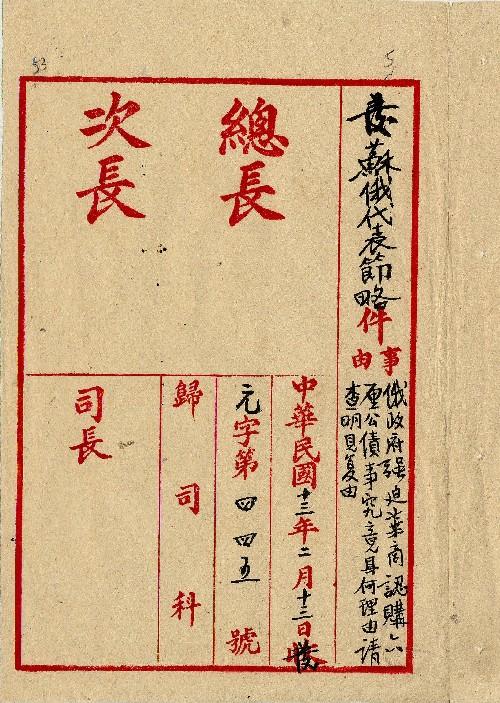 發蘇俄代表節略件
事由
俄政府强迫華商認購六
厘公債事究竟具何理由請
查明見复由
總長
次長
中華民國十三年二月十三日發
元字第四四五號
歸司科
司長
53
5